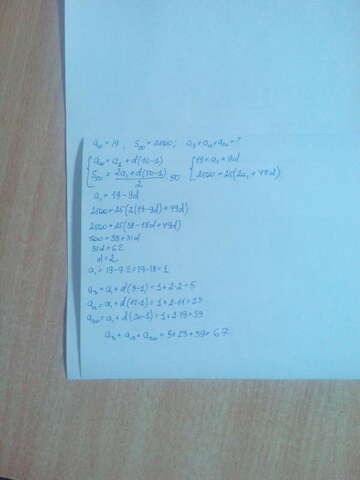 a₁₀ = 19, S₅₀ = 2500; a₃ + a₁₂ + a₂₀ = ?
{ a₁₀ = a₁ + d(10-1) { 19 = a₁ + 9d
{ S₅₀ = (2a₁ + d(50-1))/2 · 50 { 2500 = 25(2a₁ + 49d)
a₁ = 19 - 9d
2500 = 25(2(19-9d) + 49d)
2500 = 25(38 - 18d + 49d)
100 = 38 + 31d
31d = 62
d = 2
a₁ = 19 - 9·2 = 19 - 18 = 1
a₃ = a₁ + d(3-1) = 1 + 2·2 = 5
a₁₂ = a₁ + d(12-1) = 1 + 2·11 = 23
a₂₀ = a₁ + d(20-1) = 1 + 2·19 = 39
a₃ + a₁₂ + a₂₀ = 5 + 23 + 39 = 67